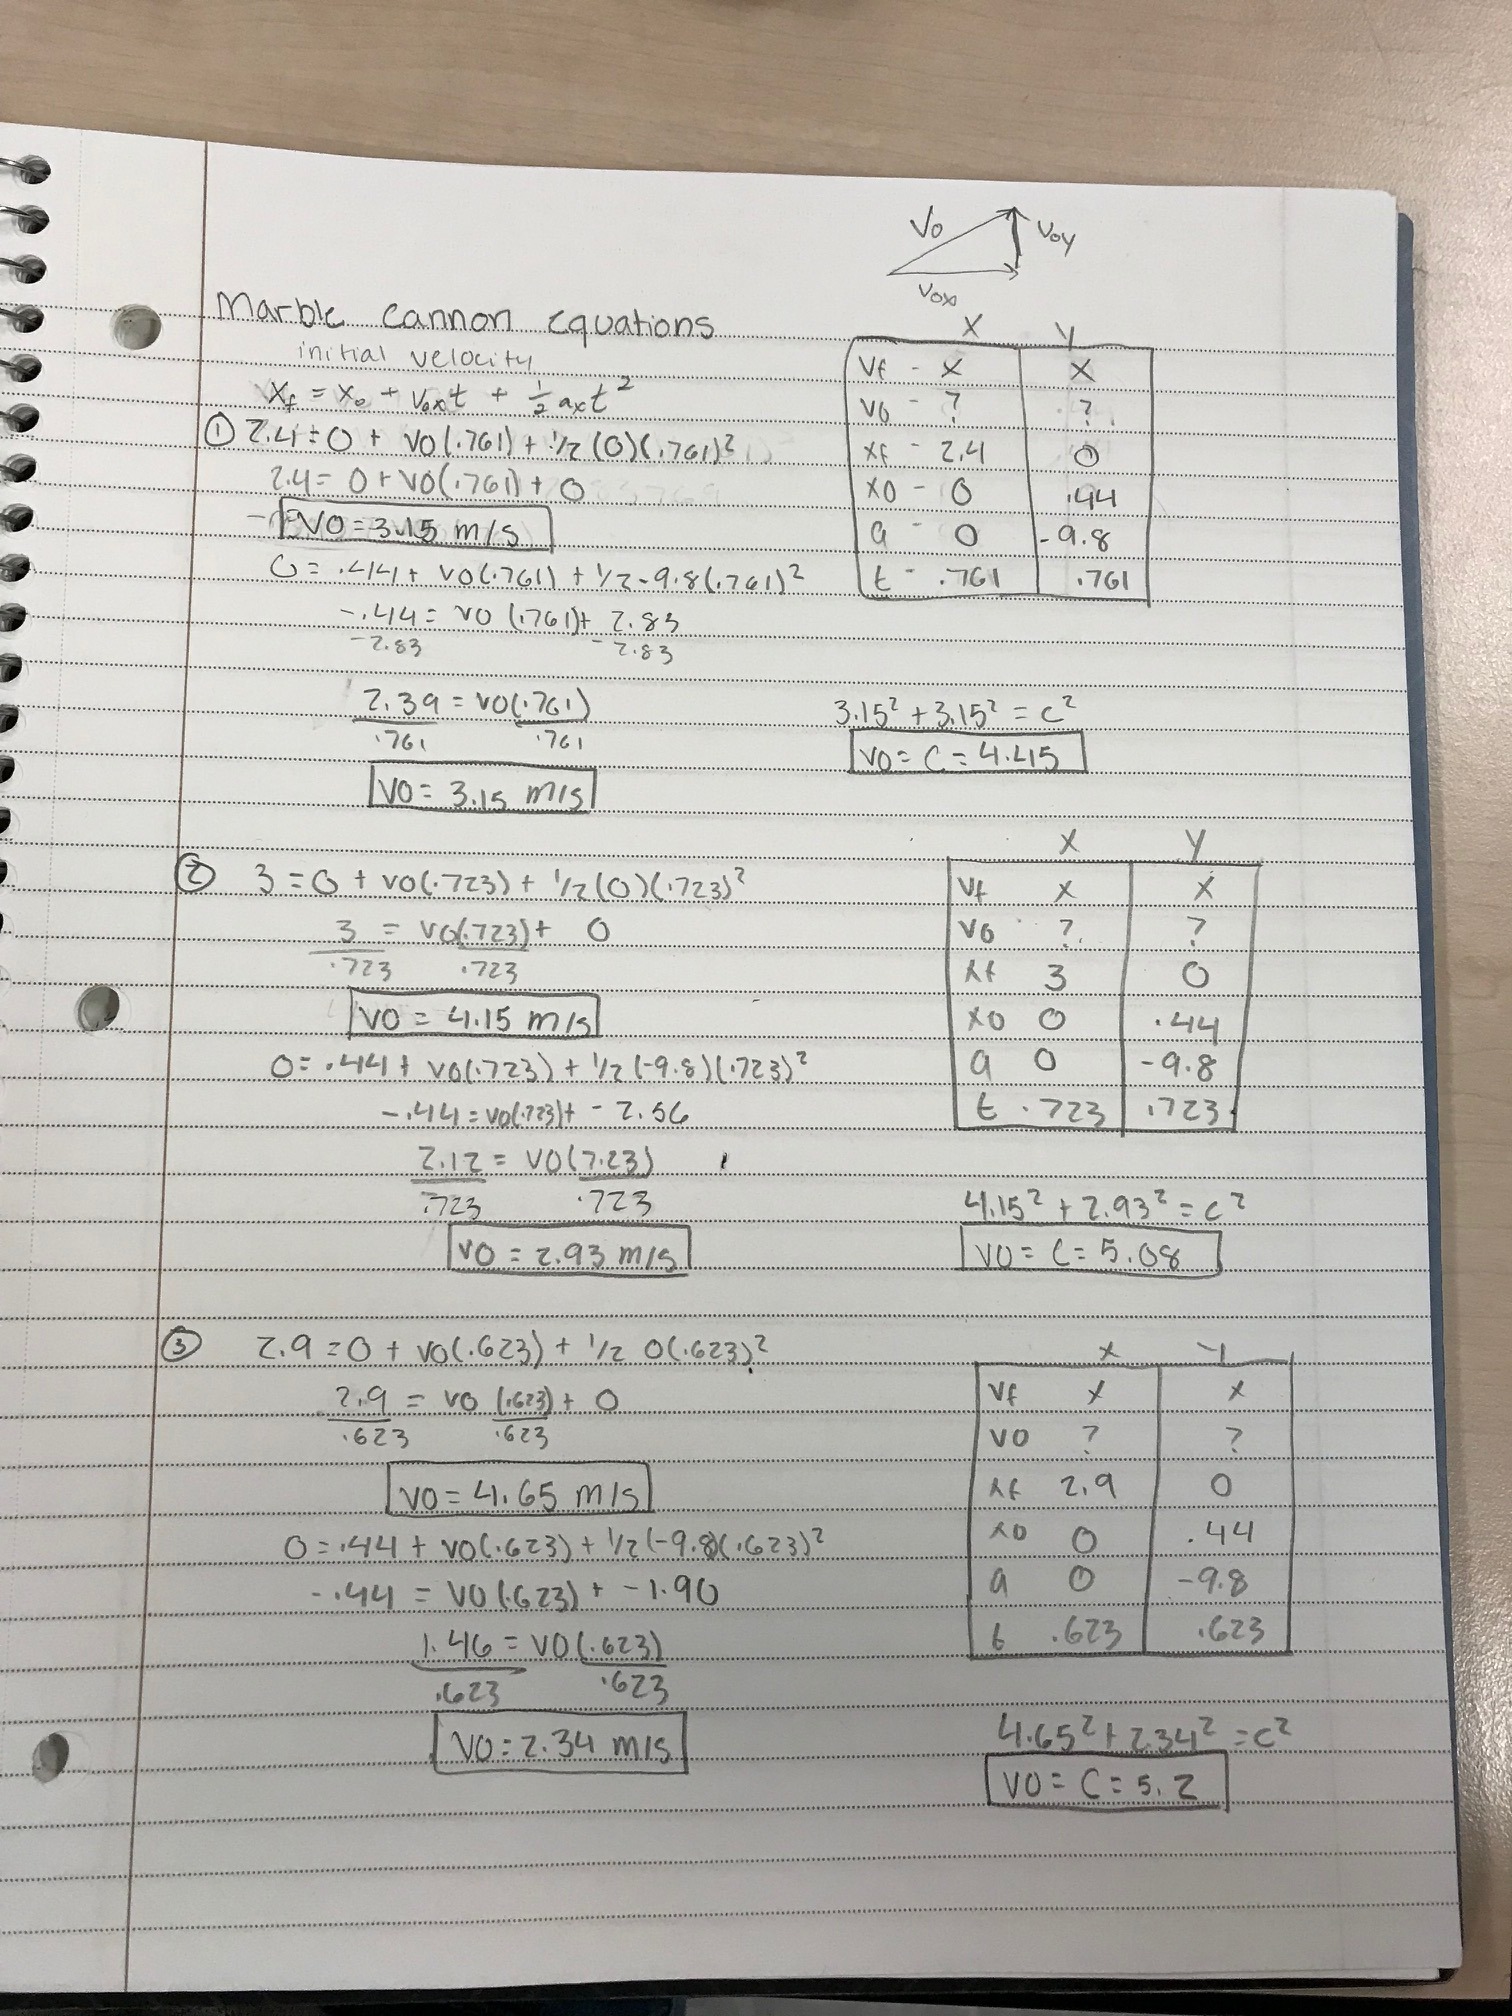 Marble Cannon Equations
initial velocity
Xf = X₀ + V₀xt + ½ axt²
① 2.4 = 0 + V0(.761) + 1/2(0)(.761)²
2.4 = 0 + V0(.761) + 0
V0 = 3.15 m/s
0 = .44 + V0(.761) + 1/2 -9.8(.761)²
-.44 = V0(.761) + -2.83
-2.83 -2.83
2.39 = V0(.761)
.761 .761
V0 = 3.15 m/s
V0
V0x
V0y
X Y
Vf - X X
V0 - ? ?
Xf - 2.4 0
X0 - 0 .44
a - 0 -9.8
t - .761 .761
3.15² + 3.15² = c²
V0 = C = 4.415
② 3 = 0 + V0(.723) + 1/2(0)(.723)²
3 = V0(.723) + 0
.723 .723
V0 = 4.15 m/s
0 = .44 + V0(.723) + 1/2(-9.8)(.723)²
-.44 = V0(.723) + -2.56
2.12 = V0(7.23)
.723 .723
V0 = 2.93 m/s
X Y
Vf X X
V0 ? ?
Xf 3 0
X0 0 .44
a 0 -9.8
t .723 .723
4.15² + 2.93² = c²
V0 = C = 5.08
③ 2.9 = 0 + V0(.623) + 1/2 0(.623)²
2.9 = V0(.623) + 0
.623 .623
V0 = 4.65 m/s
0 = .44 + V0(.623) + 1/2(-9.8(.623)²
-.44 = V0(.623) + -1.90
1.46 = V0(.623)
.623 .623
V0 = 2.34 m/s
X Y
Vf X X
V0 ? ?
Xf 2.9 0
X0 0 .44
a 0 -9.8
t .623 .623
4.65² + 2.34² = c²
V0 = C = 5.2